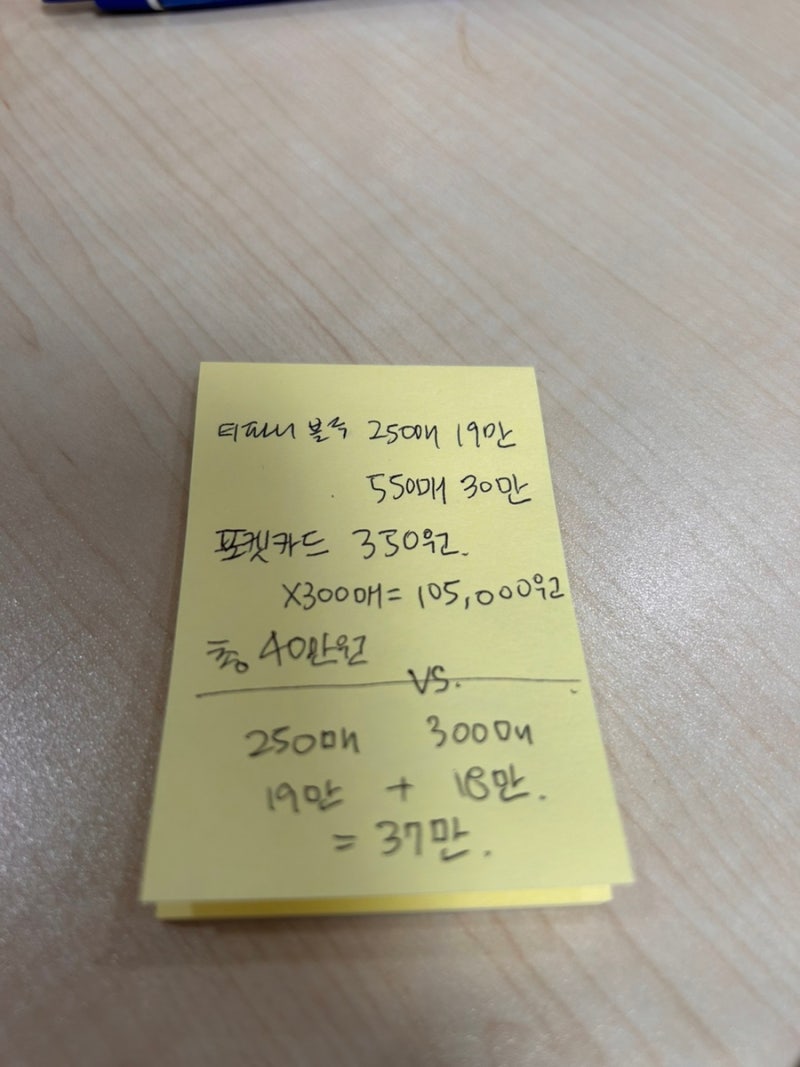 티파니 블루 250매 19만
550매 30만
포켓카드 350원.
X300매 = 105,000원
총 40만원
VS.
250매 300매
19만 + 18만.
= 37만.